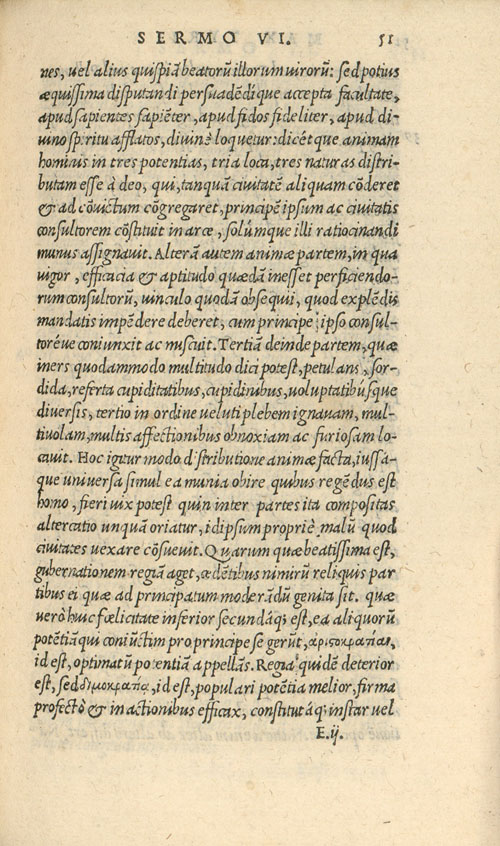 SERMO VI. 51
nes, uel alius quispiã beatorũ illorum uirorũ: sed potius
æquissima disputandi persuadẽdique accepta facultate,
apud sapientes sapiẽter, apud fidos fideliter, apud di-
uino spiritu afflatos, diuinè loquetur: dicét que animam
hominis in tres potentias, tria loca, tres naturas distri-
butam esse à deo, qui, tanquã ciuitatẽ aliquam cõderet
& ad cõuictum cõgregaret, principẽ ipsum ac ciuitatis
consultorem cõstituit in arce, solúmque illi ratiocinandi
munus assignauit. Alterã autem animæ partem, in qua
uigor, efficacia & aptitudo quædã inesset perficiendo-
rum consultorũ, uinculo quodã obsequii, quod explẽdis
mandatis impẽdere deberet, cum principe ipso consul-
toréue coniunxit ac miscuit. Tertiã deinde partem, quæ
iners quodammodo multitudo dici potest, petulans, sor-
dida, referta cupiditatibus, cupidinibus, uoluptatibúsque
diuersis, tertio in ordine ueluti plebem ignauam, mul-
tiuolam, multis affectionibus obnoxiam ac furiosam lo-
cauit. Hoc igitur modo distributione animæ facta, iussa-
que uniuersa simul ea munia obire quibus regẽdus est
homo, fieri uix potest quin inter partes ita compositas
altercatio unquã oriatur, id ipsum propriè malũ quod
ciuitates uexare cõsueuit. Quarum quæ beatissima est,
gubernationem regiã aget, cedẽtibus nimirũ reliquis par
tibus ei quæ ad principatum moderãdũ genita sit. quæ
uerò huic fœlicitate inferior secundáq; est, ea aliquorũ
potẽtiã qui coniũctim pro principe se gerũt, ἀριστοκρατίαν,
id est, optimatũ potentiã appellãs. Regia quidẽ deterior
est, sed δημοκρατίᾳ, id est, populari potẽtia melior, firma
profectò & in actionibus efficax, constitutáq; instar uel
E.ij.